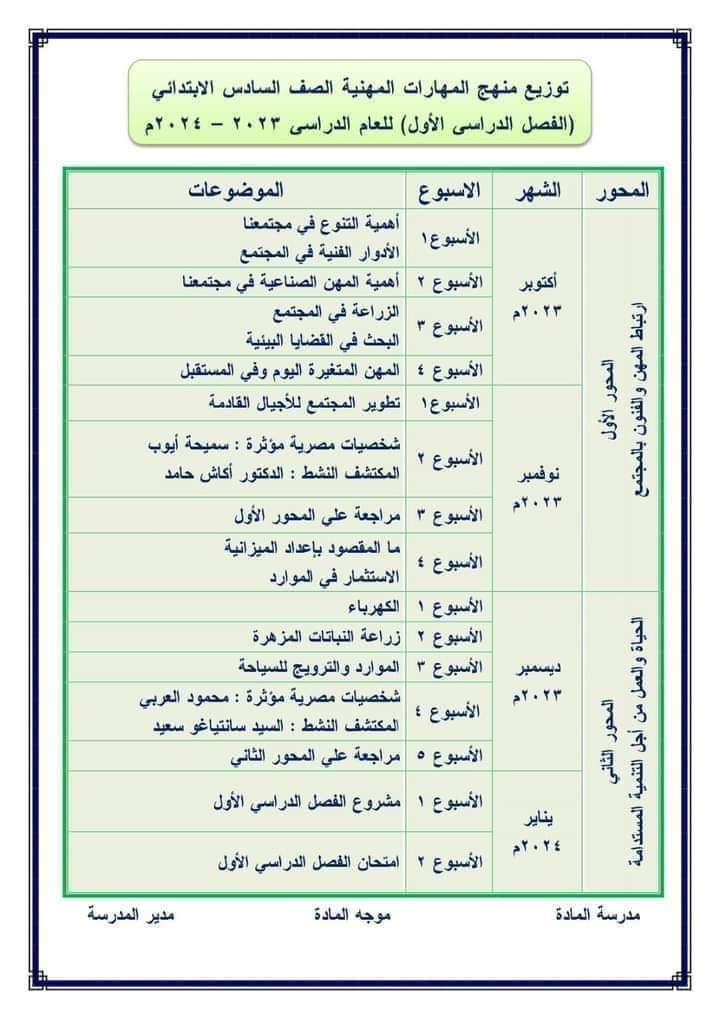 توزيع منهج المهارات المهنية الصف السادس الابتدائي
(الفصل الدراسى الأول) للعام الدراسى ٢٠٢٣ – ٢٠٢٤م
المحور الشهر الاسبوع الموضوعات
المحور الأول
ارتباط المهن والفنون بالمجتمع
أكتوبر
٢٠٢٣م
الأسبوع١
أهمية التنوع في مجتمعنا
الأدوار الفنية في المجتمع
الأسبوع ٢ أهمية المهن الصناعية في مجتمعنا
الأسبوع ٣
الزراعة في المجتمع
البحث في القضايا البيئية
الأسبوع ٤ المهن المتغيرة اليوم وفي المستقبل
نوفمبر
٢٠٢٣م
الأسبوع١ تطوير المجتمع للأجيال القادمة
الأسبوع ٢
شخصيات مصرية مؤثرة : سميحة أيوب
المكتشف النشط : الدكتور أكاش حامد
الأسبوع ٣ مراجعة علي المحور الأول
الأسبوع ٤
ما المقصود بإعداد الميزانية
الاستثمار في الموارد
المحور الثاني
الحياة والعمل من أجل التنمية المستدامة
ديسمبر
٢٠٢٣م
الأسبوع ١ الكهرباء
الأسبوع ٢ زراعة النباتات المزهرة
الأسبوع ٣ الموارد والترويج للسياحة
الأسبوع ٤
شخصيات مصرية مؤثرة : محمود العربي
المكتشف النشط : السيد سانتياغو سعيد
الأسبوع ٥ مراجعة علي المحور الثاني
يناير
٢٠٢٤م
الأسبوع ١ مشروع الفصل الدراسي الأول
الأسبوع ٢ امتحان الفصل الدراسي الأول
مدرسة المادة موجه المادة مدير المدرسة